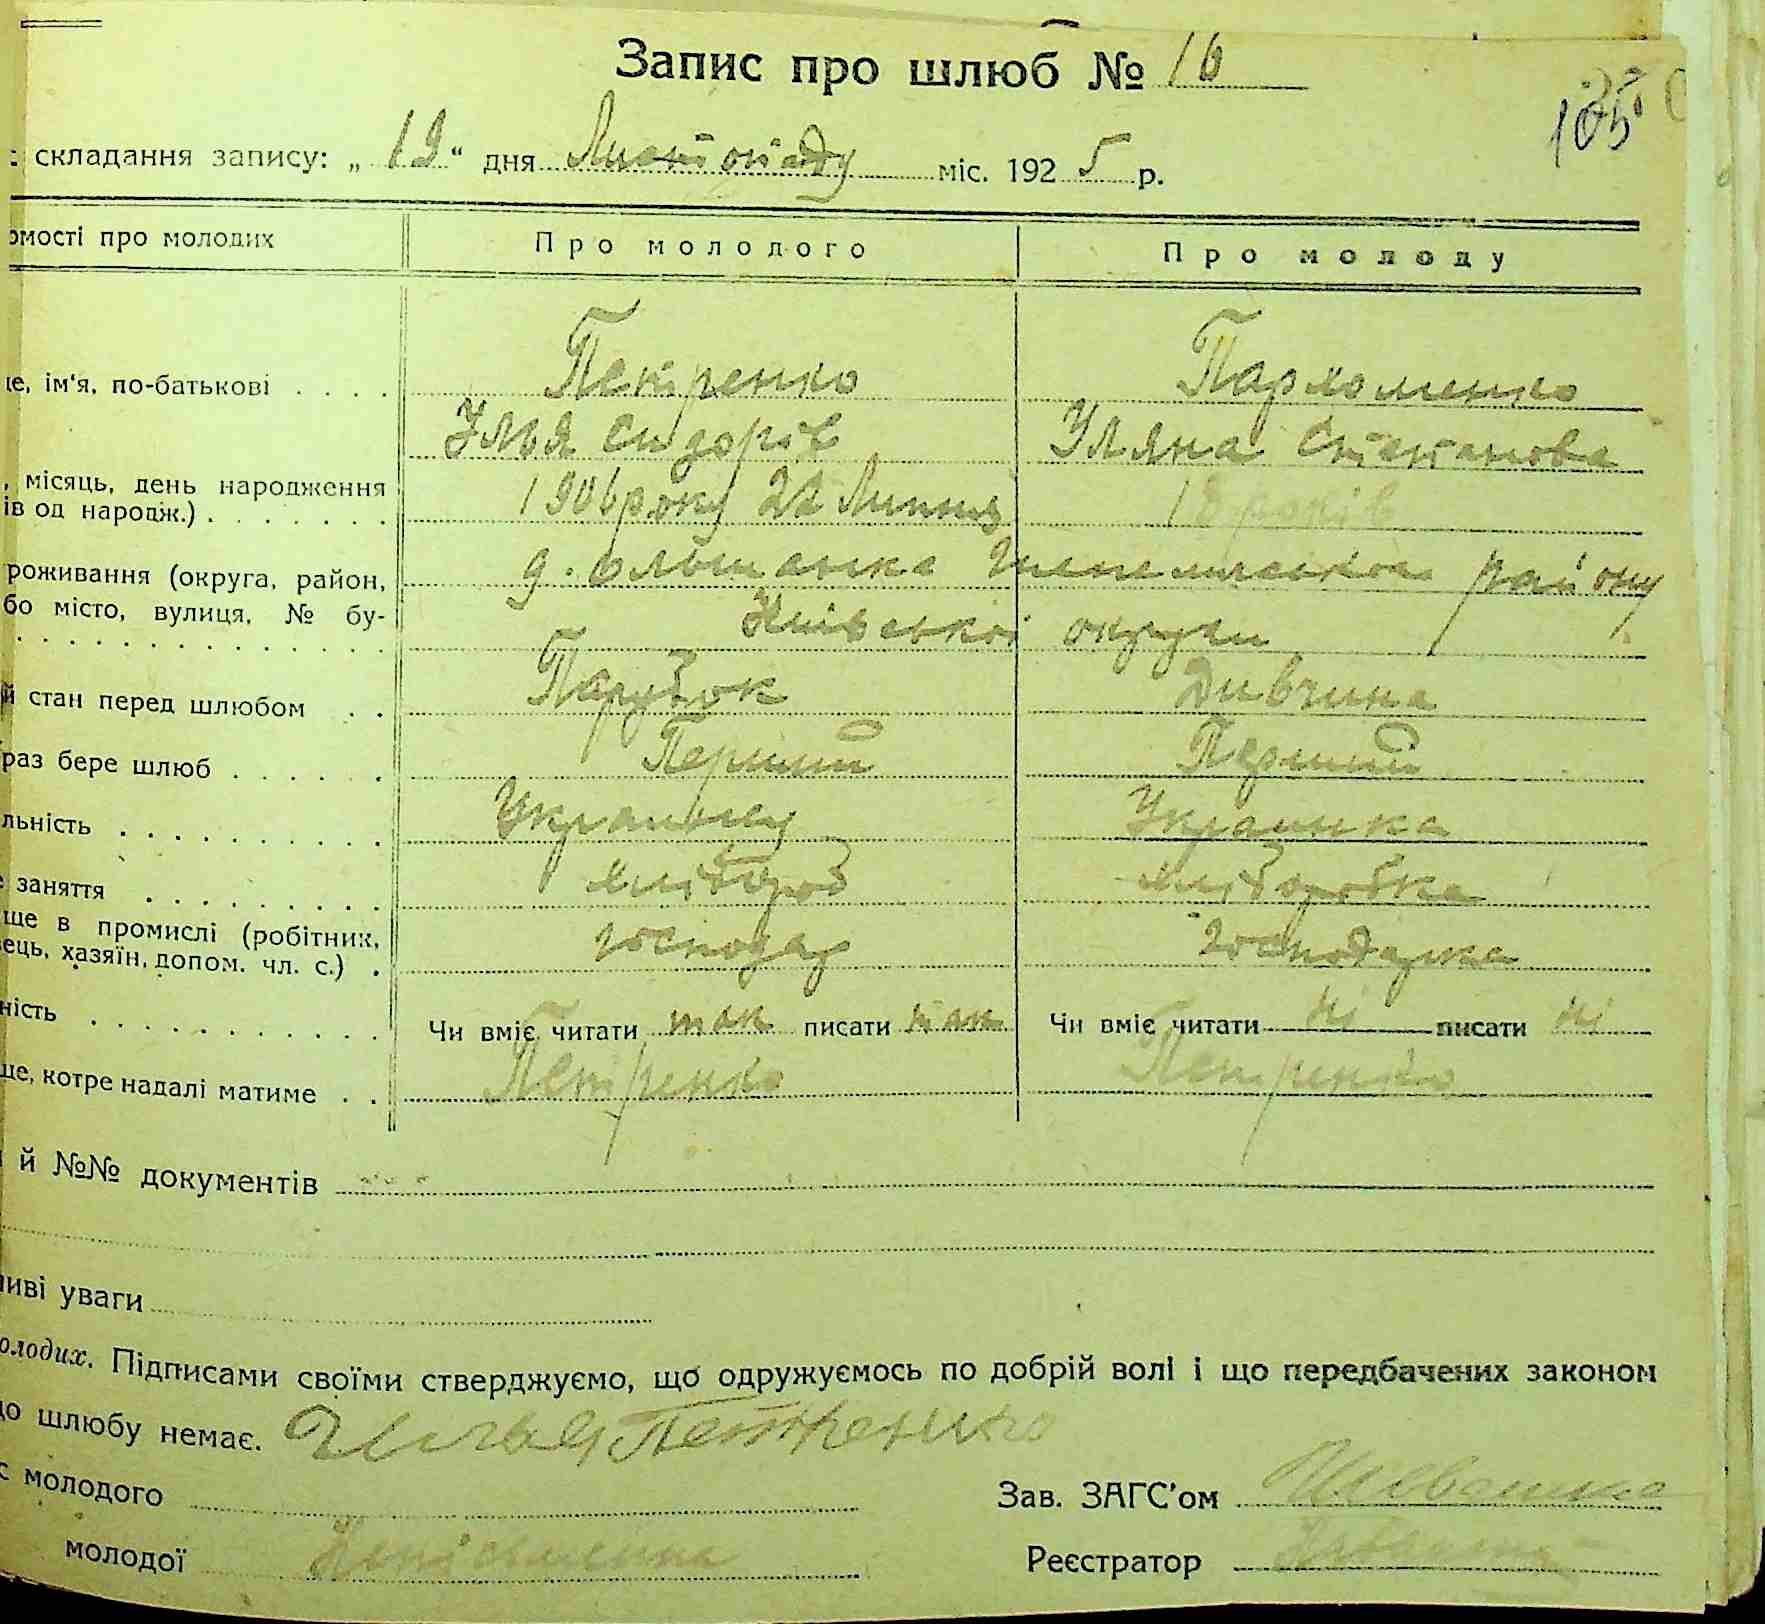 Запис про шлюб № 16
105
складання запису: „ 19 “ дня Листопаду міс. 1925 р.
омості про молодих Про молодого Про молоду
це, ім'я, по-батькові . . . . Петренко Пархоменко
Улья Сидорів Уляна Степанова
, місяць, день народження
ів од народж.) . . . . . . . 1906 року 22 Липня 18 років
роживання (округа, район, д. Ольшанка району
бо місто, вулиця, № бу- Київської округи
й стан перед шлюбом . . Парубок Дивчина
раз бере шлюб . . . . . . Перший Перший
льність . . . . . . . . . . Украинец Украинка
е заняття . . . . . . . . . хлібороб хлі­боробка
ще в промислі (робітник,
вець, хазяїн, допом. чл. с.) . господар господарка
ність . . . . . . . . . . . Чи вміє читати так писати так Чи вміє читати ні писати ні
ще, котре надалі матиме . . Петренко Петренко
й №№ документів
иві уваги
олодих. Підписами своїми стверджуємо, що одружуємось по добрій волі і що передбачених законом
до шлюбу немає. Илья Петренко
с молодого Зав. ЗАГС'ом
молодої Неписьменна Реєстратор